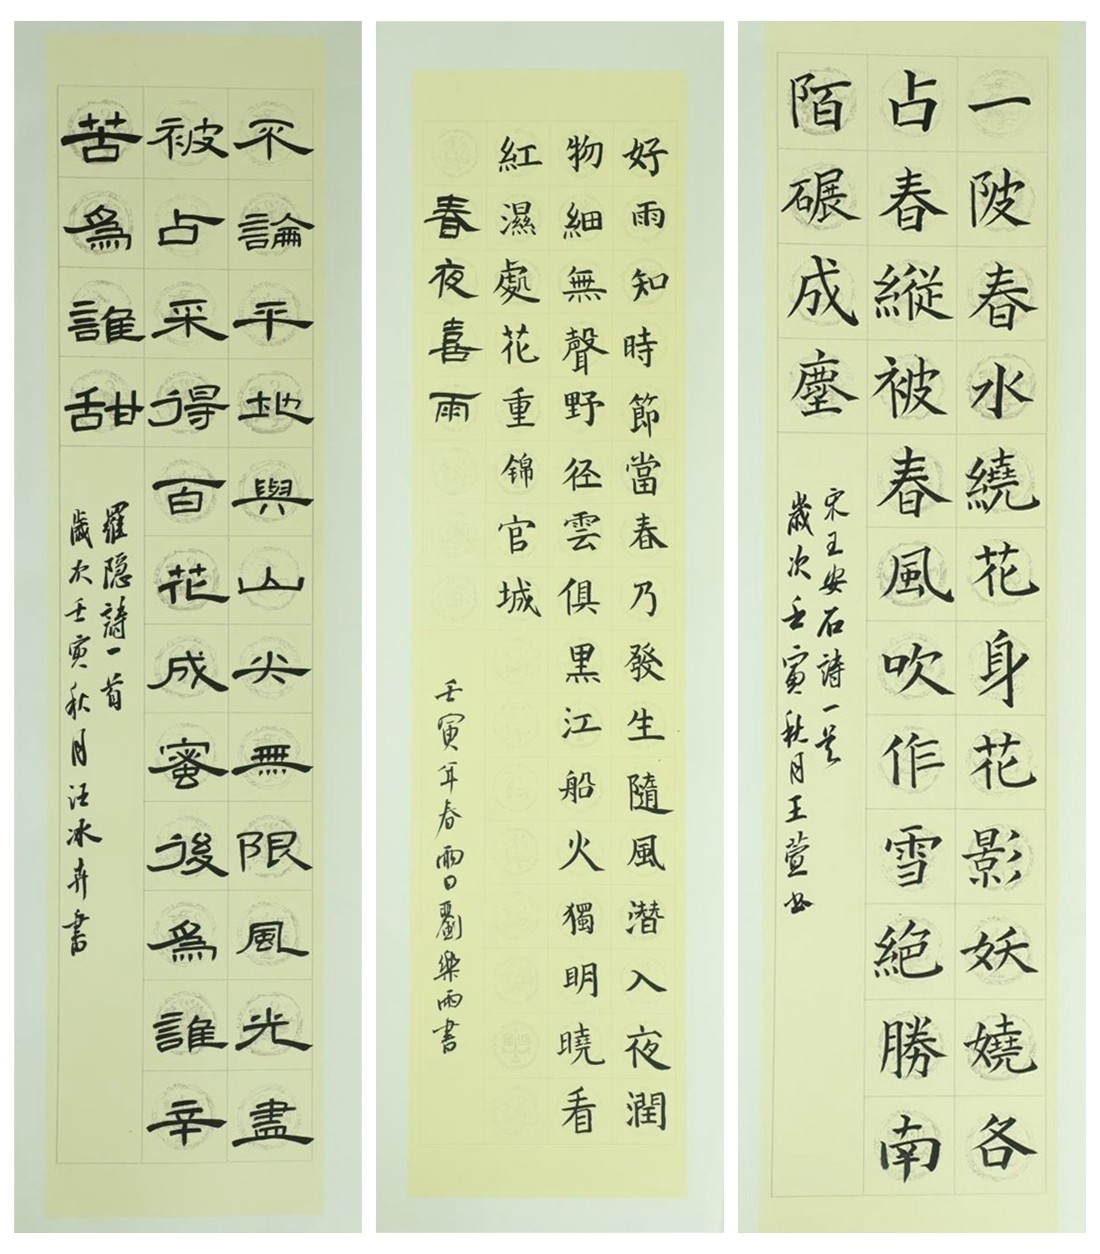 不論平地與山尖無限風光盡
被占采得百花成蜜後為誰辛
苦為誰甜
羅隐詩一首
歲次壬寅秋月汪冰卉書
好雨知時節當春乃發生隨風潜入夜潤
物細無聲野径雲俱黑江船火獨明曉看
紅濕處花重錦官城
春夜喜雨
壬寅年春雨日劉樂雨書
一陂春水繞花身花影妖嬈各
占春縱被春風吹作雪絕勝南
陌碾成塵
宋王安石詩一首
歲次壬寅秋月王萱書